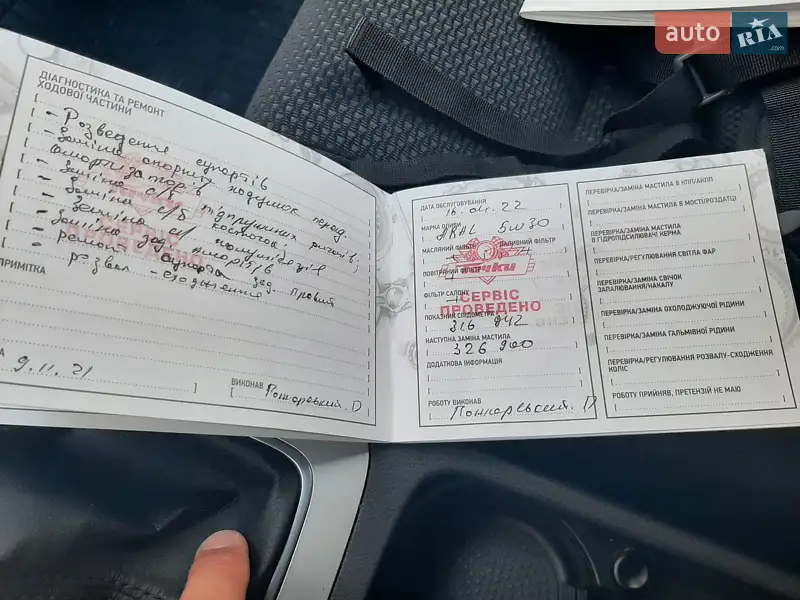 auto
RIA
.com
ДІАГНОСТИКА ТА РЕМОНТ
ХОДОВОЇ ЧАСТИНИ
- Розведення супортів
- Заміна опорних подушок перед.
амортизаторів
- Заміна с/б підпружних
- Заміна с/б косточок
- Заміна с/
- Заміна зад. аморт.
- ремонт супорта зад. правий
- розвал - сходження
ПРИМІТКА
9.11.21
ВИКОНАВ
Пожаревський. Д
ДАТА ОБСЛУГОВУВАННЯ
16.04.22
МАРКА ОЛИВИ
ARAL 5W30
МАСЛЯНИЙ ФІЛЬТР
ПАЛИВНИЙ ФІЛЬТР
ПОВІТРЯНИЙ ФІЛЬТР
ФІЛЬТР САЛОНУ
+
СЕРВІС
ПРОВЕДЕНО
ПОКАЗНИК СПІДОМЕТРА
316 942
НАСТУПНА ЗАМІНА МАСТИЛА
326 900
ДОДАТКОВА ІНФОРМАЦІЯ
РОБОТУ ВИКОНАВ
Пожаревський. Д
ПЕРЕВІРКА/ЗАМІНА МАСТИЛА В КПП/АКПП
ПЕРЕВІРКА/ЗАМІНА МАСТИЛА В МОСТІ/РОЗДАТЦІ
ПЕРЕВІРКА/ЗАМІНА МАСТИЛА
В ГІДРОПІДСИЛЮВАЧІ КЕРМА
ПЕРЕВІРКА/РЕГУЛЮВАННЯ СВІТЛА ФАР
ПЕРЕВІРКА/ЗАМІНА СВІЧОК
ЗАПАЛЮВАННЯ/НАКАЛУ
ПЕРЕВІРКА/ЗАМІНА ОХОЛОДЖУЮЧОЇ РІДИНИ
ПЕРЕВІРКА/ЗАМІНА ГАЛЬМІВНОЇ РІДИНИ
ПЕРЕВІРКА/РЕГУЛЮВАННЯ РОЗВАЛУ-СХОДЖЕННЯ
КОЛІС
РОБОТУ ПРИЙНЯВ, ПРЕТЕНЗІЙ НЕ МАЮ